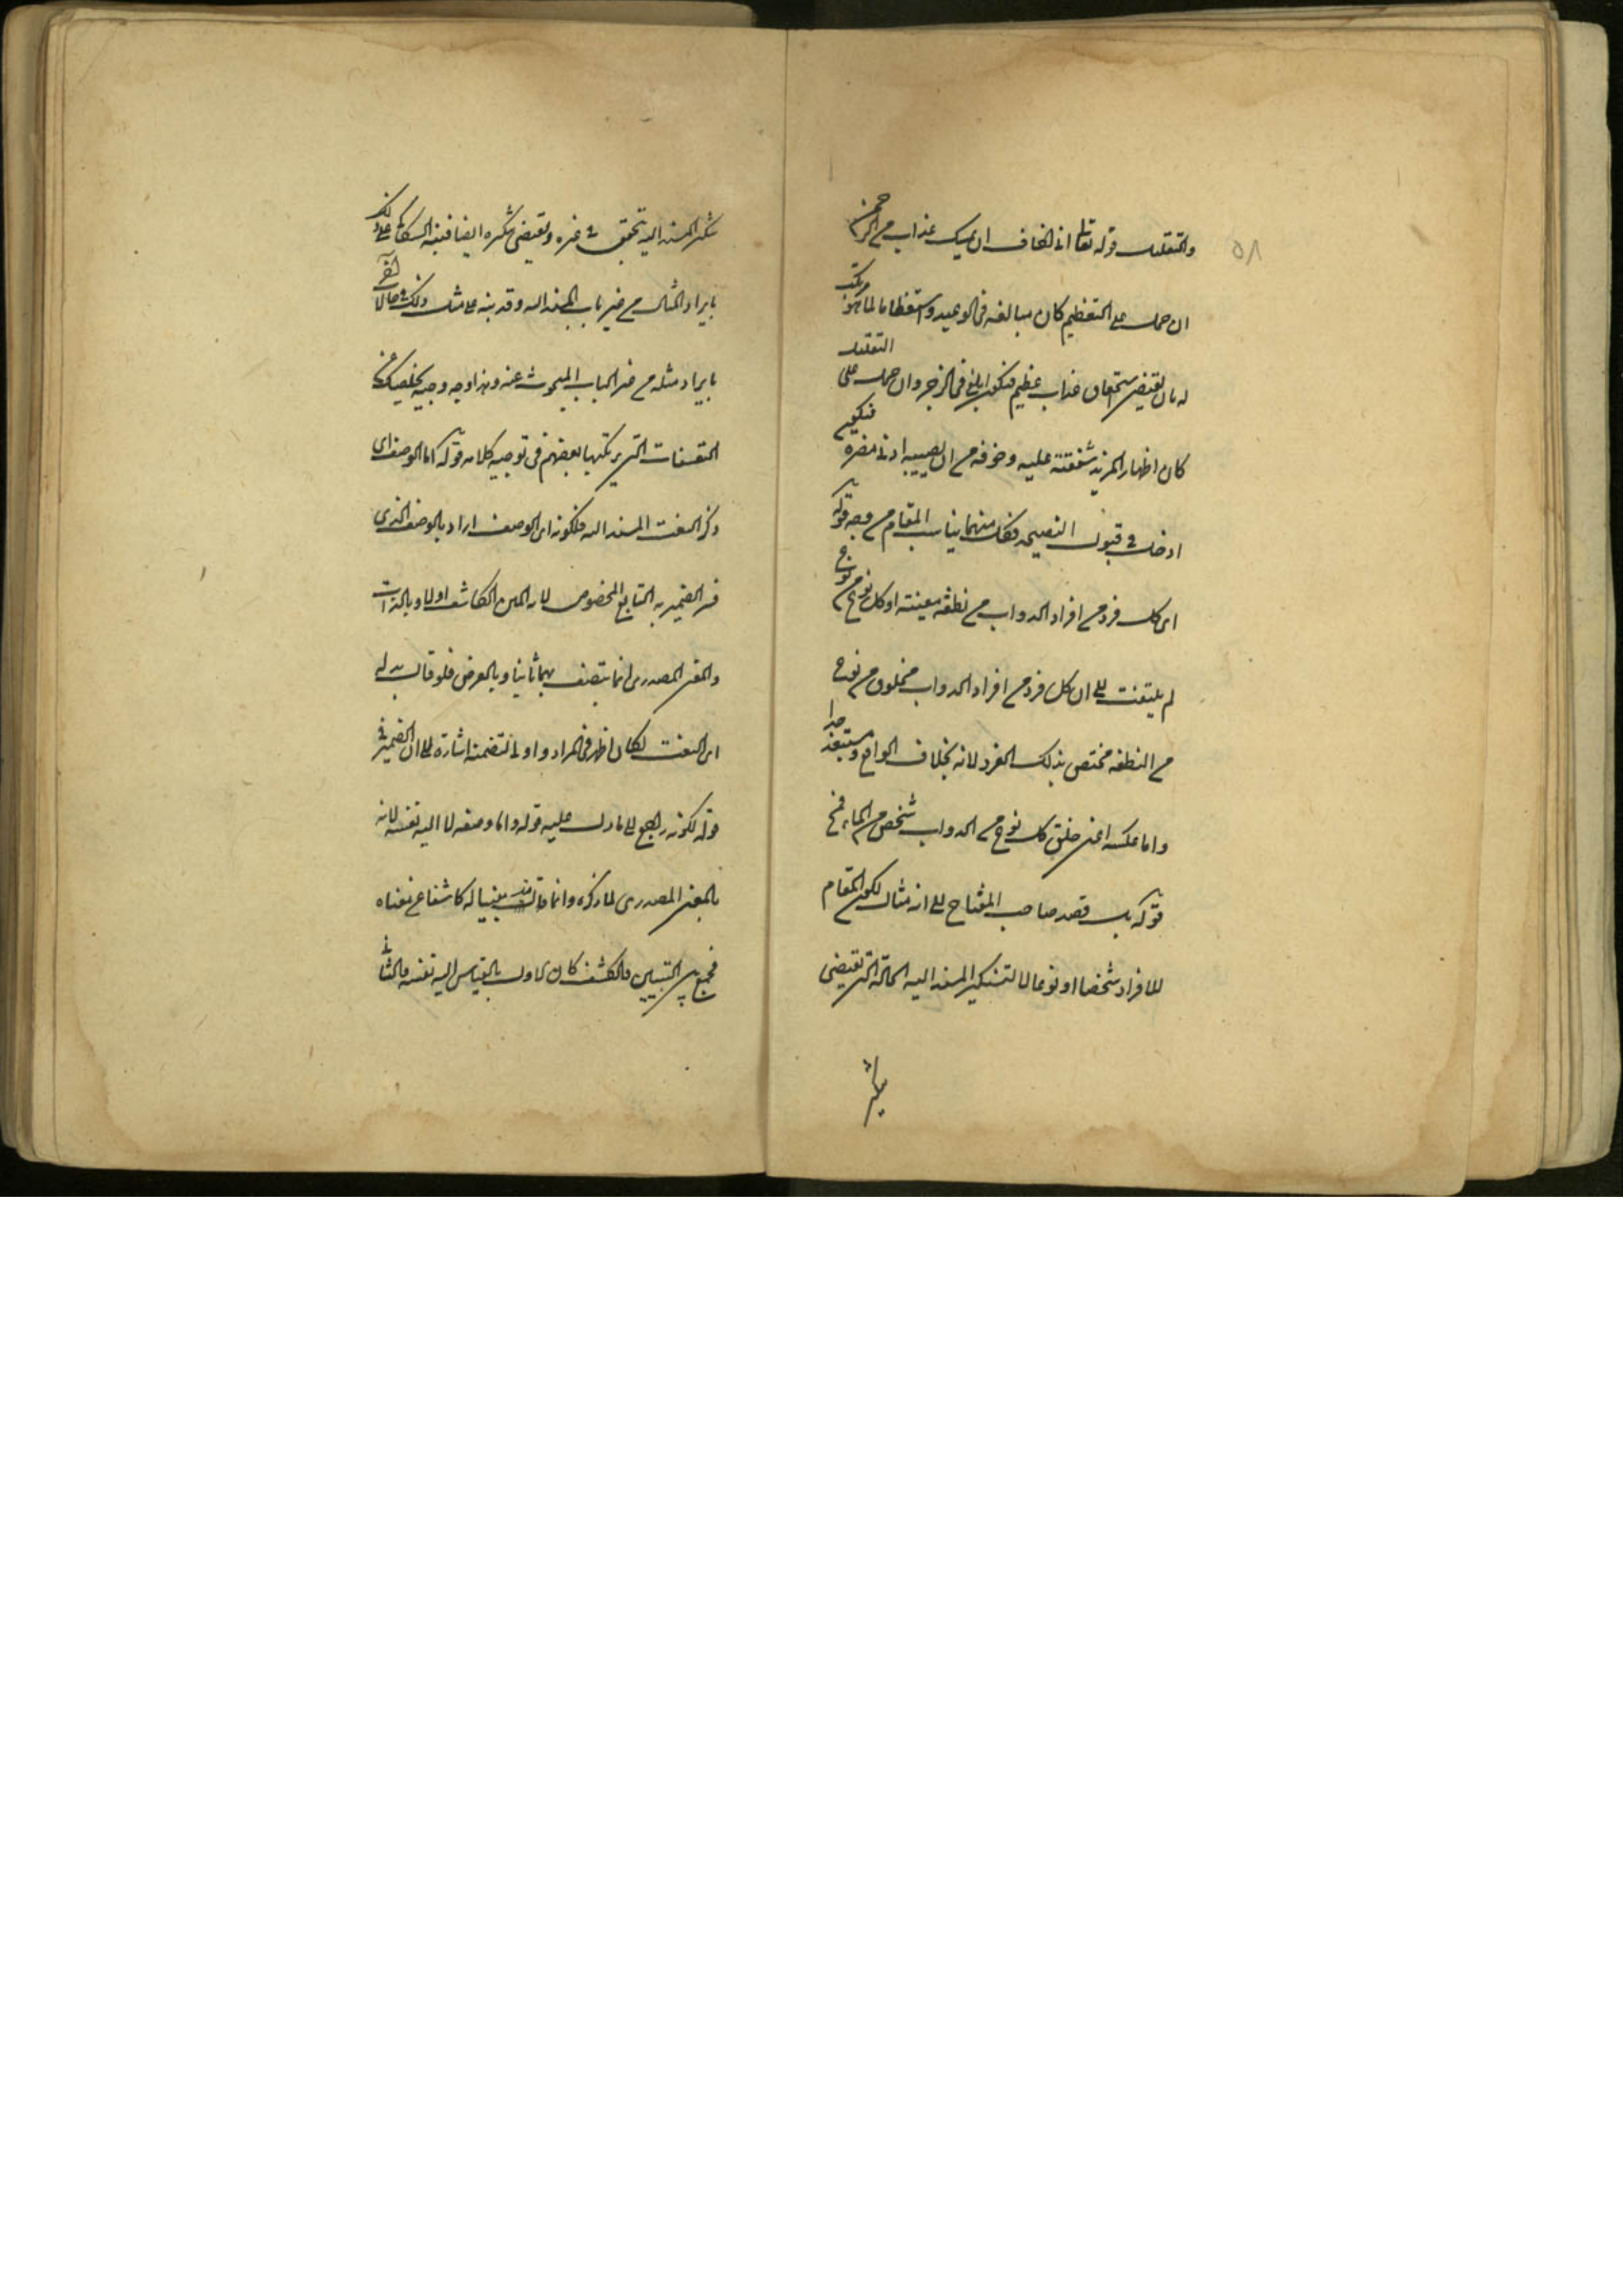 والتقليل قوله تعالى انى اخاف ان يمسك عذاب من الرحمن
ان حمل على التعظيم كان مبالغه فى الوعيد واستعظاما لما هو مرتكب
له بان يقتضى استحقاق عذاب عظيم فيكون ابلغ فى الزجر وان حمل على التقليل
كان اظهارا لمزيد شفقته عليه وخوفه من ان يصيبه ادنى مضره فيكون
ادخل فى قبول النصيحه فكل منهما يناسب المقام من وجه قوله
اى كل فرد من افراد الدواب من نطفه معينه او كل نوع من نوع
لم يلتفت الى ان كل فرد من افراد الدواب مخلوق من نوع
من النطفه مختص بذلك الفرد لانه بخلاف الواقع ومستبعد جدا
واما عكسه اعنى خلق كل نوع من الدواب شخص من الماء
قوله بل قصد صاحب المفتاح الى انه مثال لكون المقام
للافراد شخصا او نوعا لا لتنكير المسند اليه الحالة التى تقتضى
تنكير
٥٨
تنكير المسند اليه يتحقق فى غيره وتقتضى تنكيره ايضا فنبه السكاكى على ذلك
بايراد المثال من غير باب المسند اليه وقد نبه على مثل ذلك فى حالات اخر
بايراد مثله من غير الباب المبحوث عنه وهذا وجه وجيه يخلصك عن
التعسفات التى يرتكبها بعضهم فى توجيه كلامه قوله اما الوصف اى
ذكر النعت للمسند اليه فلكونه اى الوصف اراد بالوصف الذى
فسر الضمير به التابع المخصوص لانه المبين الكاشف اولا وبالذات
والمعنى المصدرى انما يتصف بهما ثانيا وبالعرض فلو قال بدله
اى النعت لكان اظهر فى المراد واولى لتضمنه اشارة الى ان الضمير فى
قوله لكونه راجع الى ما دل عليه قوله واما وصفه لا اليه نفسه لانه
بالمعنى المصدرى لما ذكره وانما قال مبينا له كاشفا عن معناه
فجمع بين التبيين والكشف كان الاول بالقياس اليه نفسه والثانى